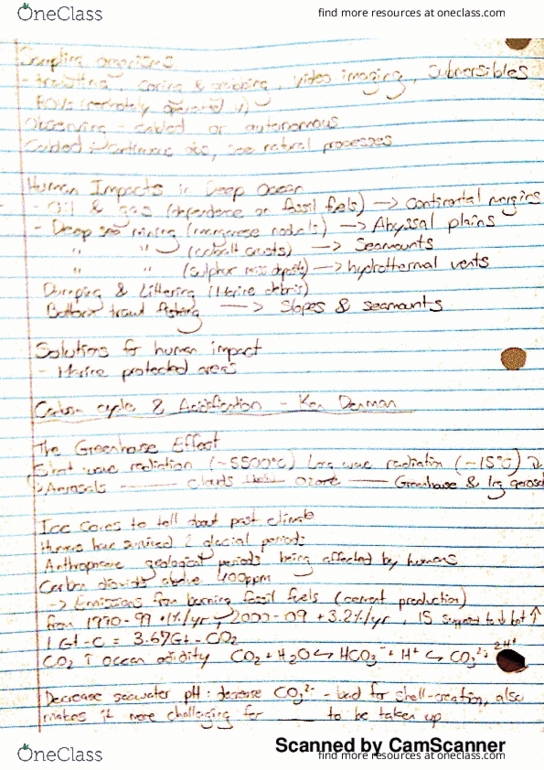 OneClass
find more resources at oneclass.com
Sampling organisms
- trawling, coring & grabbing, video imaging, submersibles
ROVs (remotely operated v)
Observing - cabled or autonomous
Cabled → continuous obs, see natural processes
Human Impacts in Deep Ocean
- Oil & gas (dependence on fossil fuels) → Continental margins
- Deep sea mining (manganese nodules) → Abyssal plains
" " (cobalt crusts) → Seamounts
" " (sulphur mass deposits) → hydrothermal vents
Dumping & Littering (Marine debris)
Bottom trawl fishing → Slopes & seamounts
Solutions for human impact
- Marine protected areas
Carbon cycle & Acidification - Ken Denman
The Greenhouse Effect
Short wave radiation (~5500°C) Long wave radiation (~15°C)
Aerosols — clouds — ozone — Greenhouse & lrg aerosol
Ice cores to tell about past climate
Humans have survived 2 glacial periods
Anthropocene geological periods being affected by humans
Carbon dioxide above 400ppm
→ Emissions from burning fossil fuels (cement production)
from 1990-99 +1%/yr 2000-09 +3.2%/yr, IS supposed to ↓ but ↑
1 Gt-C = 3.67Gt-CO2
CO2 ↑ ocean acidity CO2 + H2O ↔ HCO3⁻ + H⁺ ↔ CO3²⁻ 2H⁺
Decrease seawater pH: decrease CO3²⁻ - bad for shell-creation, also
makes it more challenging for ____ to be taken up
OneClass
find more resources at oneclass.com
Scanned by CamScanner